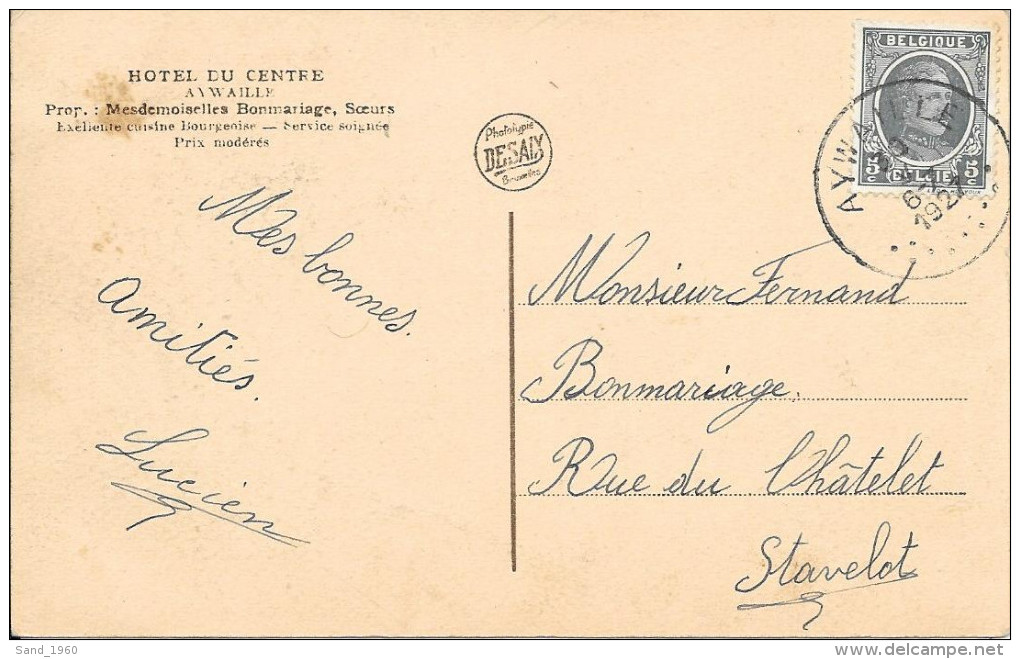 HOTEL DU CENTRE
AYWAILLE
Prop. : Mesdemoiselles Bonmariage, Sœurs
Exellente cuisine Bourgeoise — Service soignée
Prix modérés
Phototypie
DESAIX
Bruxelles
BELGIQUE
5c BELGIË 5c
AYWAILLE
1927
Mes bonnes
Amitiés.
Lucien
Monsieur Fernand
Bonmariage.
Rue du Châtelet
Stavelot
Sand_1960
delcampe.net